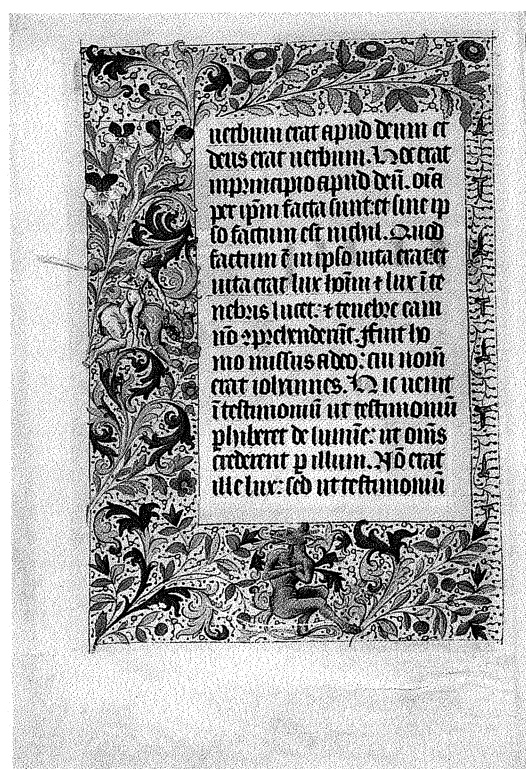 uerbum erat apud deum et
deus erat uerbum. Hoc erat
in principio apud deū. oīa
per ip̄m facta sunt: et sine ip
so factum est nichil. Quod
factum ē in ipso uita erat: et
uita erat lux hoīm ⁊ lux ī te
nebris lucet: ⁊ tenebre eam
nō ꝯprehenderūt. Fuit ho
mo missus a deo: cui nomē
erat iohannes. Hic uenit
ī testimoniū ut testimoniū
ꝑhiberet de lumīe: ut om̄s
crederent ꝑ illum. Nō erat
ille lux: sed ut testimoniū